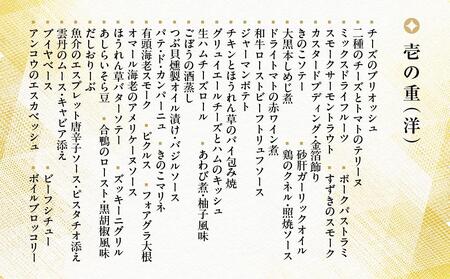 壱の重(洋)
チーズのブリオッシュ
二種のチーズとトマトのテリーヌ
ミックスドライフルーツ ・ポークパストラミ
スモークサーモントラウト ・すずきのスモーク
カスタードプディング・金箔飾り
きのこソテー ・砂肝ガーリックオイル
大黒本しめじ煮 ・鶏のクネル・照焼ソース
ドライトマトの赤ワイン煮
和牛ローストビーフトリュフソース
ジャーマンポテト
チキンとほうれん草のパイ包み焼
グリュイエールチーズとハムのキッシュ
生ハムチーズロール ・あわび煮・柚子風味
ごぼうの酒蒸し
つぶ貝燻製オイル漬け・バジルソース
パテ・ド・カンパーニュ ・きのこマリネ
有頭海老スモーク ・ピクルス ・フォアグラ大根
オマール海老のアメリケーヌソース
ほうれん草バターソテー ・ズッキーニグリル
あしらいそら豆 ・合鴨のロースト・黒胡椒風味
だしおりーぶ
魚介のエスプレット唐辛子ソース・ピスタチオ添え
雲丹のムース・キャビア添え
ブイヤベース ・ビーフシチュー
アンコウのエスカベッシュ ・ボイルブロッコリー